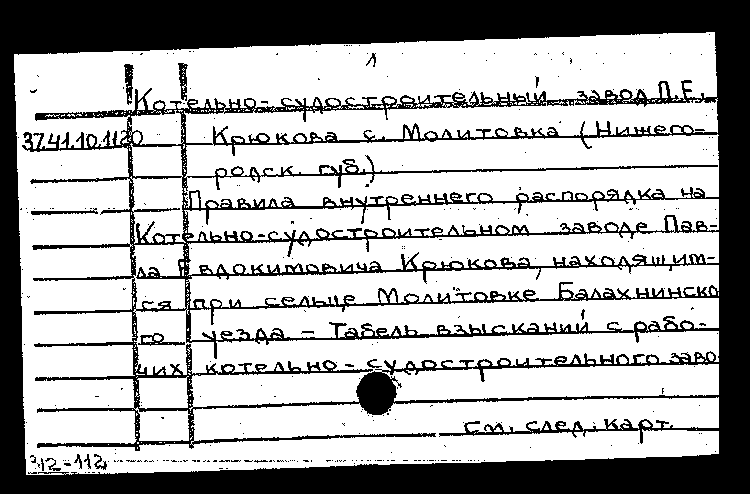 1
Котельно-судостроительный завод П.Е.
37.41.10.1120 Крюкова с. Молитовка (Нижего-
родск. губ.)
Правила внутреннего распорядка на
Котельно-судостроительном заводе Пав-
ла Евдокимовича Крюкова, находящим-
ся при сельце Молитовке Балахнинско
го уезда - Табель взысканий с рабо-
чих котельно-судостроительного заво
См. след. карт.
312-112